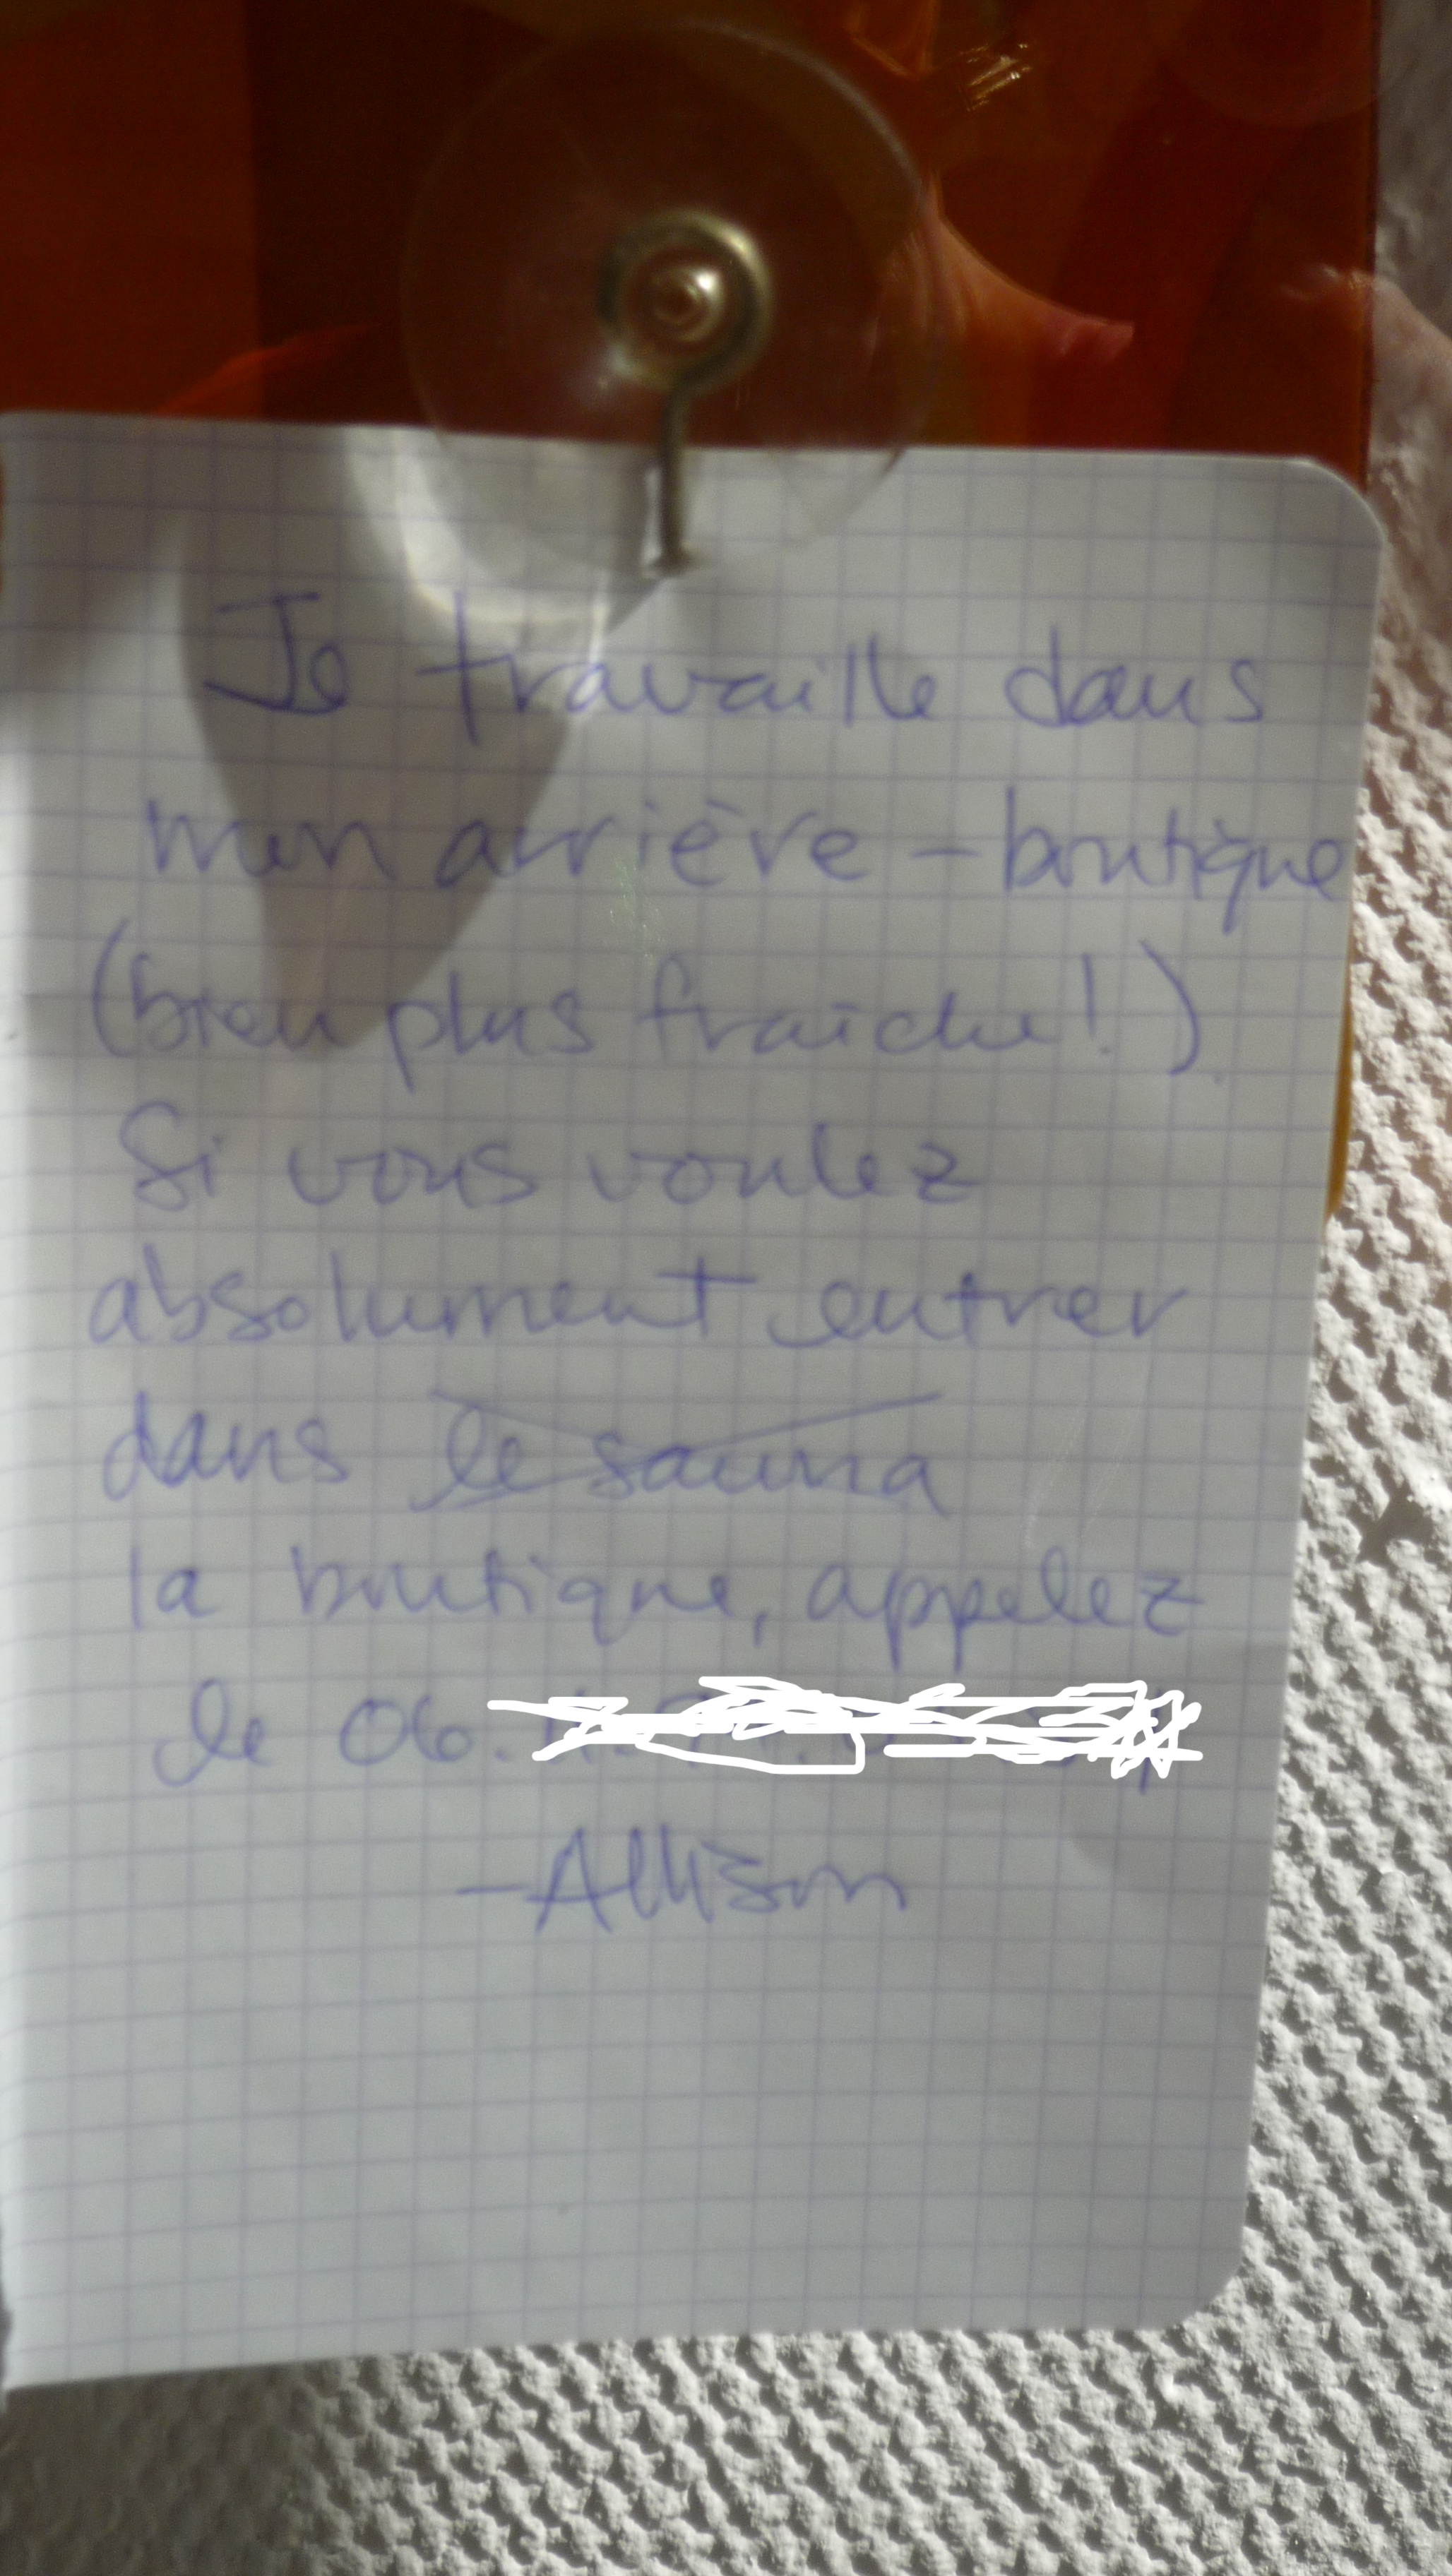 Je travaille dans
mon arrière-boutique
(bien plus fraîche!).
Si vous voulez
absolument entrer
dans le sauna
la boutique, appelez
le 06.
-Allison